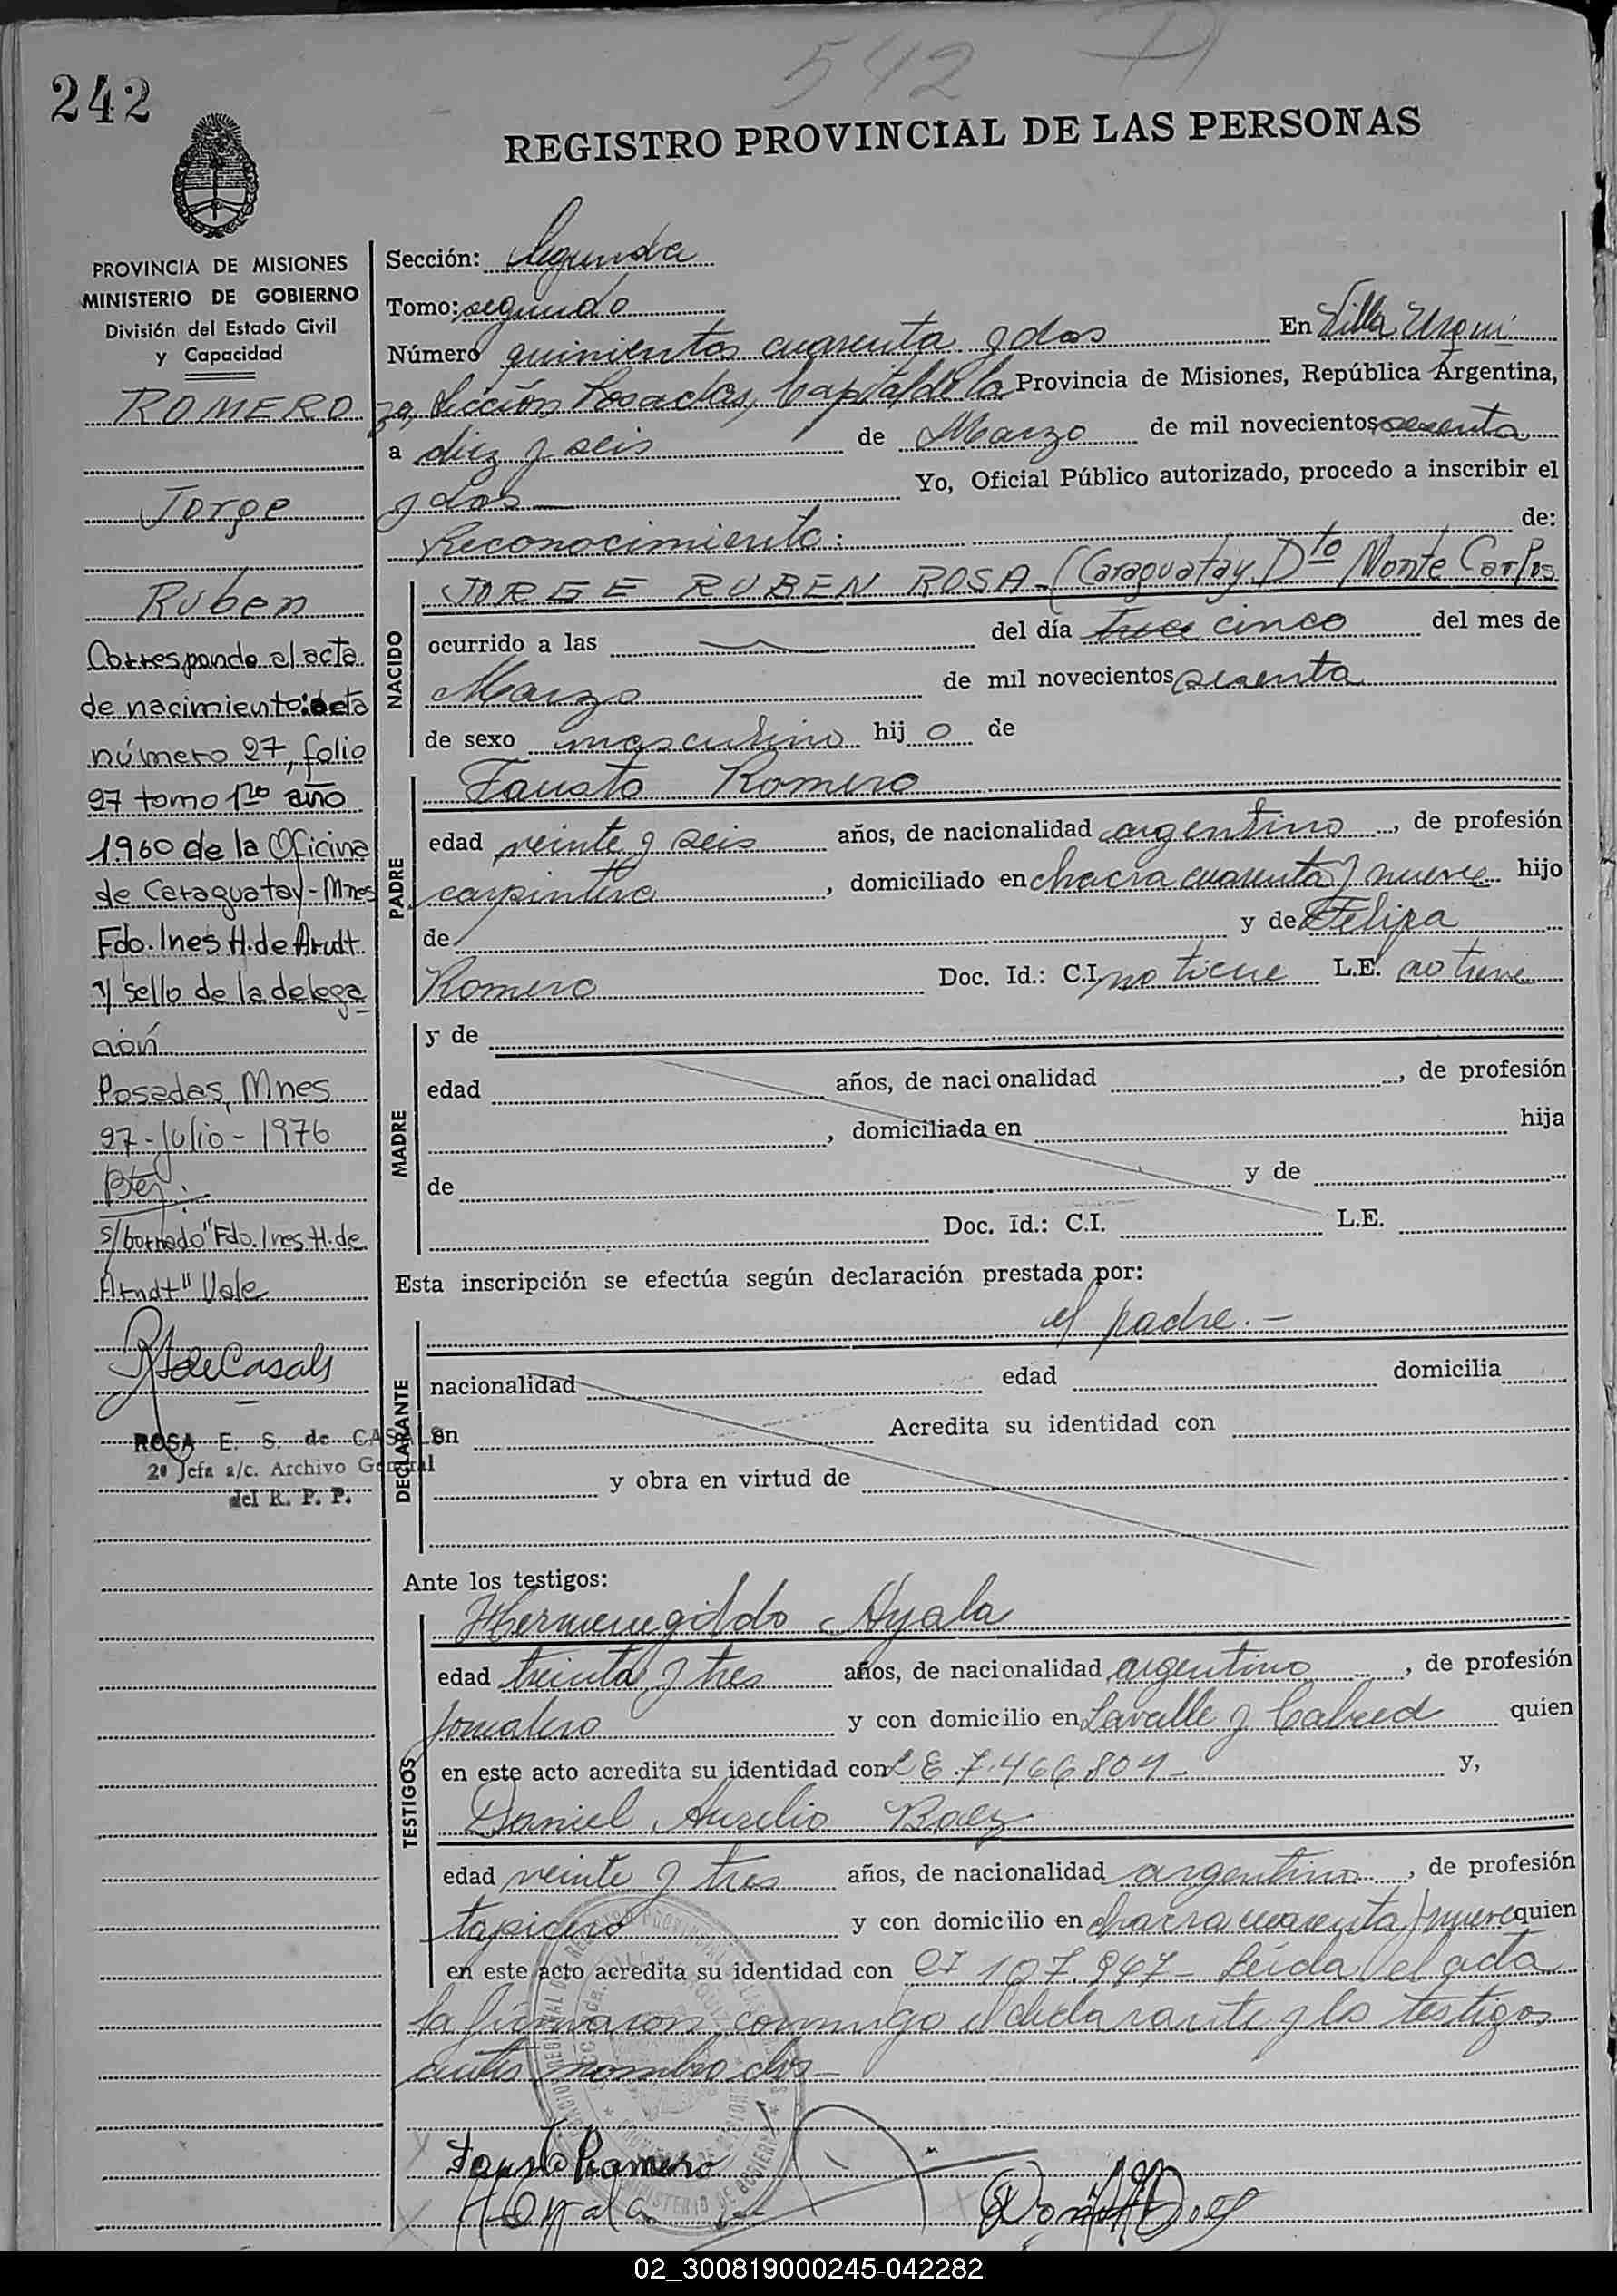 542
242
REGISTRO PROVINCIAL DE LAS PERSONAS
PROVINCIA DE MISIONES
MINISTERIO DE GOBIERNO
División del Estado Civil
y Capacidad
ROMERO
Jorge
Ruben
Corresponde al acta
de nacimiento: acta
número 27, folio
27 tomo 1ro año
1.960 de la Oficina
de Caraguatay - Mnes
Fdo. Ines H. de Arndt.
y sello de la delega
ción
Posadas, Mnes
27 - Julio - 1976
s/borrado "Fdo. Ines H. de
Arndt" Vale
R de Casals
ROSA E. S. de CASALS
2ª Jefa a/c. Archivo General
del R. P. P.
Sección: Segunda
Tomo: segundo
Número quinientos cuarenta y dos En Villa Urqui
za, Sección Posadas, Capital de la Provincia de Misiones, República Argentina,
a diez y seis de Marzo de mil novecientos sesenta
y dos Yo, Oficial Público autorizado, procedo a inscribir el
Reconocimiento: de:
NACIDO
JORGE RUBEN ROSA - (Caraguatay Dto Monte Carlos
ocurrido a las del día trece cinco del mes de
Marzo de mil novecientos sesenta
de sexo masculino hij o de
PADRE
Fausto Romero
edad veinte y seis años, de nacionalidad argentino, de profesión
carpintero, domiciliado en chacra cuarenta y nueve hijo
de y de Felipa
Romero Doc. Id.: C.I. no tiene L.E. no tiene
MADRE
y de
edad años, de nacionalidad , de profesión
, domiciliada en hija
de y de
Doc. Id.: C.I. L.E.
Esta inscripción se efectúa según declaración prestada por:
DECLARANTE
el padre. -
nacionalidad edad domicilia
en Acredita su identidad con
y obra en virtud de
Ante los testigos:
TESTIGOS
Hermenegildo Ayala
edad treinta y tres años, de nacionalidad argentino, de profesión
jornalero y con domicilio en Lavalle y Cabred quien
en este acto acredita su identidad con L E. 7.466.809 - y,
Daniel Aurelio Baez
edad veinte y tres años, de nacionalidad argentino, de profesión
tapicero y con domicilio en chacra cuarenta y nueve quien
en este acto acredita su identidad con CI 107.947 - Leída el acta
la firmaron conmigo el declarante y los testigos
antes nombrados -
Fausto Romero
H Ayala
02_300819000245-042282